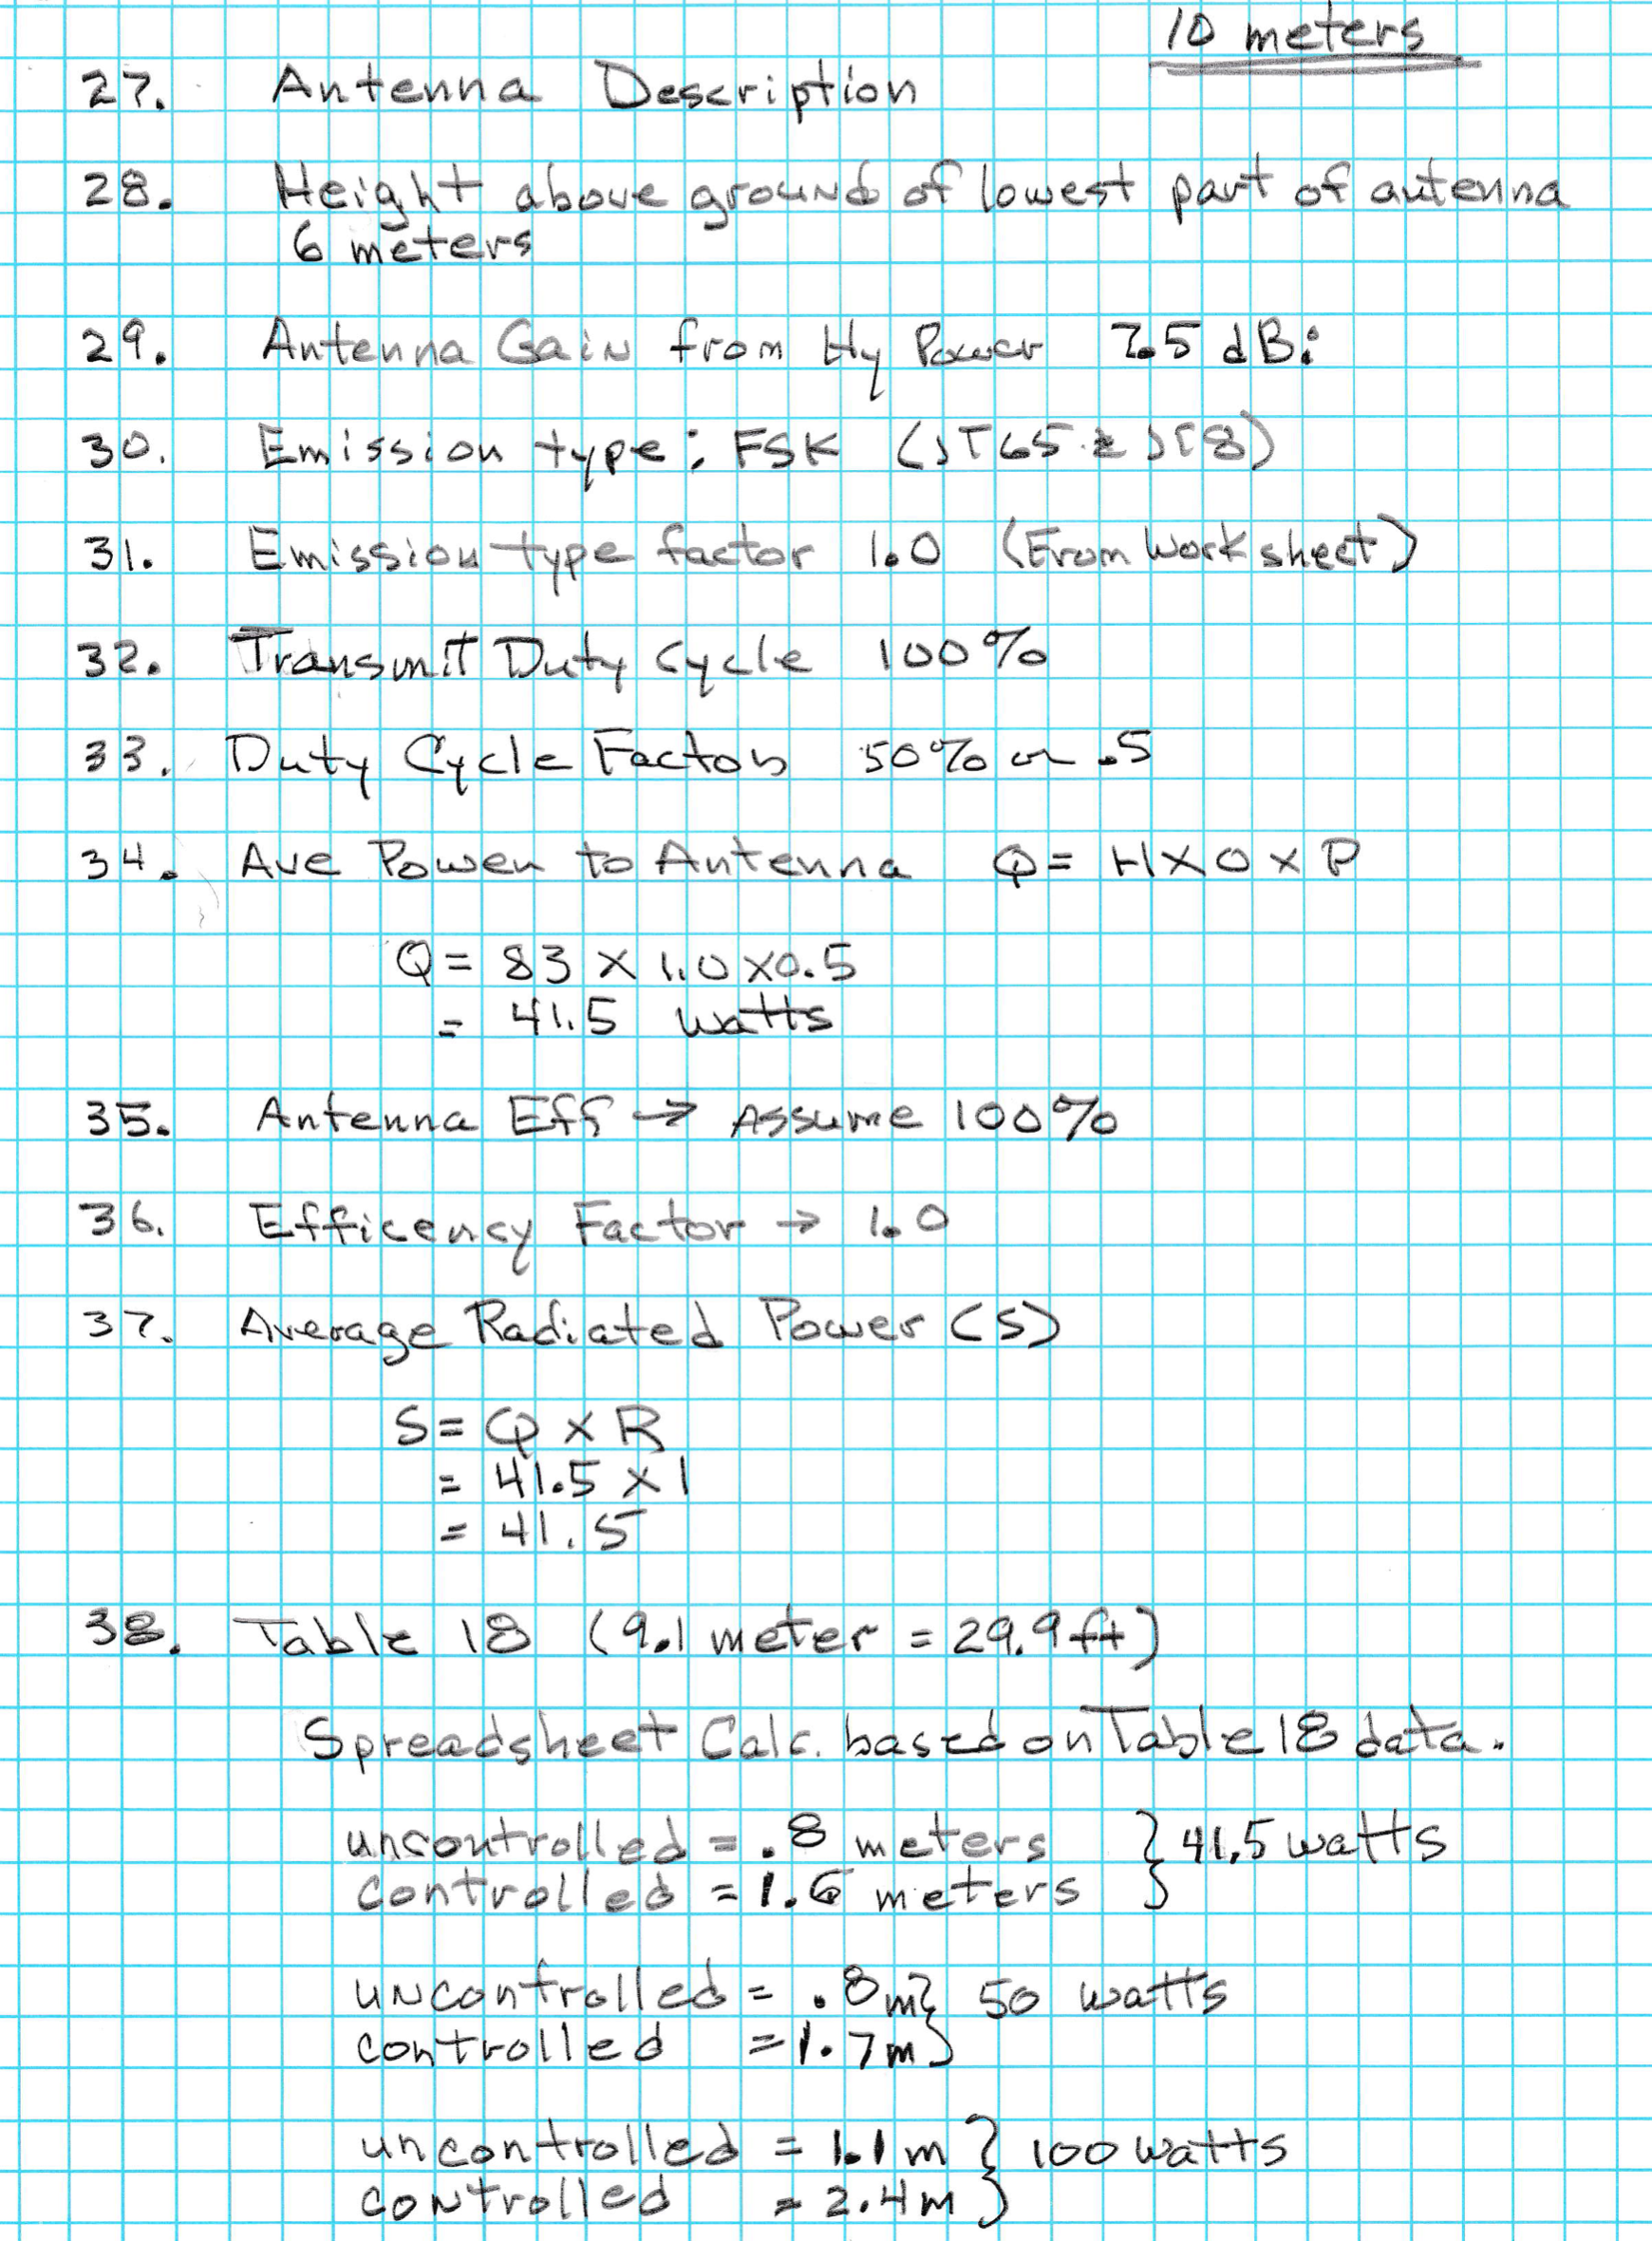 10 meters
27. Antenna Description
28. Height above ground of lowest part of antenna
6 meters
29. Antenna Gain from Hy Power 7.5 dBi
30. Emission type: FSK (JT65 & JT8)
31. Emission type factor 1.0 (From Work sheet)
32. Transmit Duty Cycle 100%
33. Duty Cycle Factor 50% or .5
34. Ave Power to Antenna Q = H X O X P
Q = 83 X 1.0 X 0.5
= 41.5 watts
35. Antenna Eff → Assume 100%
36. Efficency Factor → 1.0
37. Average Radiated Power (S)
S = Q X R
= 41.5 X 1
= 41.5
38. Table 18 (9.1 meter = 29.9 ft)
Spreadsheet Calc. based on Table 18 data.
uncontrolled = .8 meters } 41.5 watts
controlled = 1.6 meters
uncontrolled = .8m } 50 watts
controlled = 1.7m
uncontrolled = 1.1m } 100 watts
controlled = 2.4m